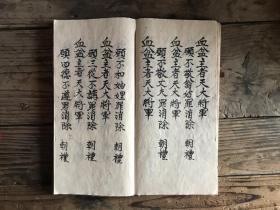 血盆主者天大將軍
願不敬翁姑罪消除 朝禮
血盆主者天大將軍
願不敬丈夫罪消除 朝禮
血盆主者天大將軍
願不和妯娌罪消除 朝禮
血盆主者天大將軍
願三從不講罪消除 朝禮
血盆主者天大將軍
願四德不遵罪消除 朝禮